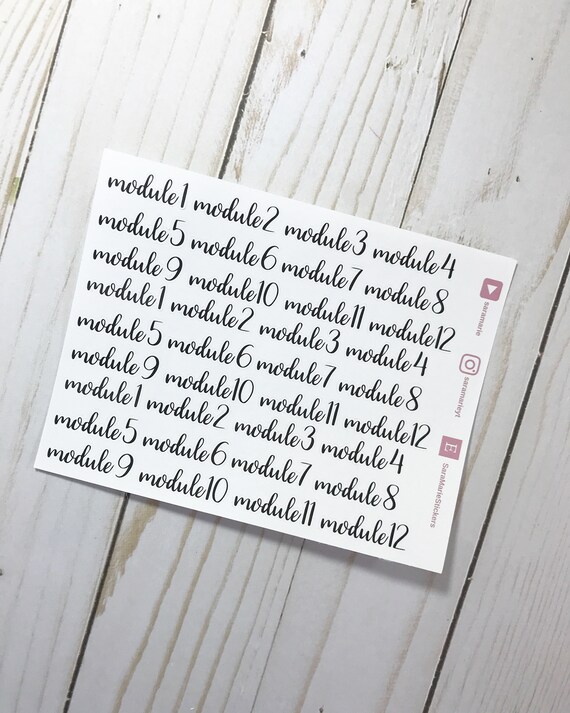 module1 module2 module3 module4
module5 module6 module7 module8
module9 module10 module11 module12
module1 module2 module3 module4
module5 module6 module7 module8
module9 module10 module11 module12
module1 module2 module3 module4
module5 module6 module7 module8
module9 module10 module11 module12
saramarie
saramarieyt
E
SaraMarieStickers